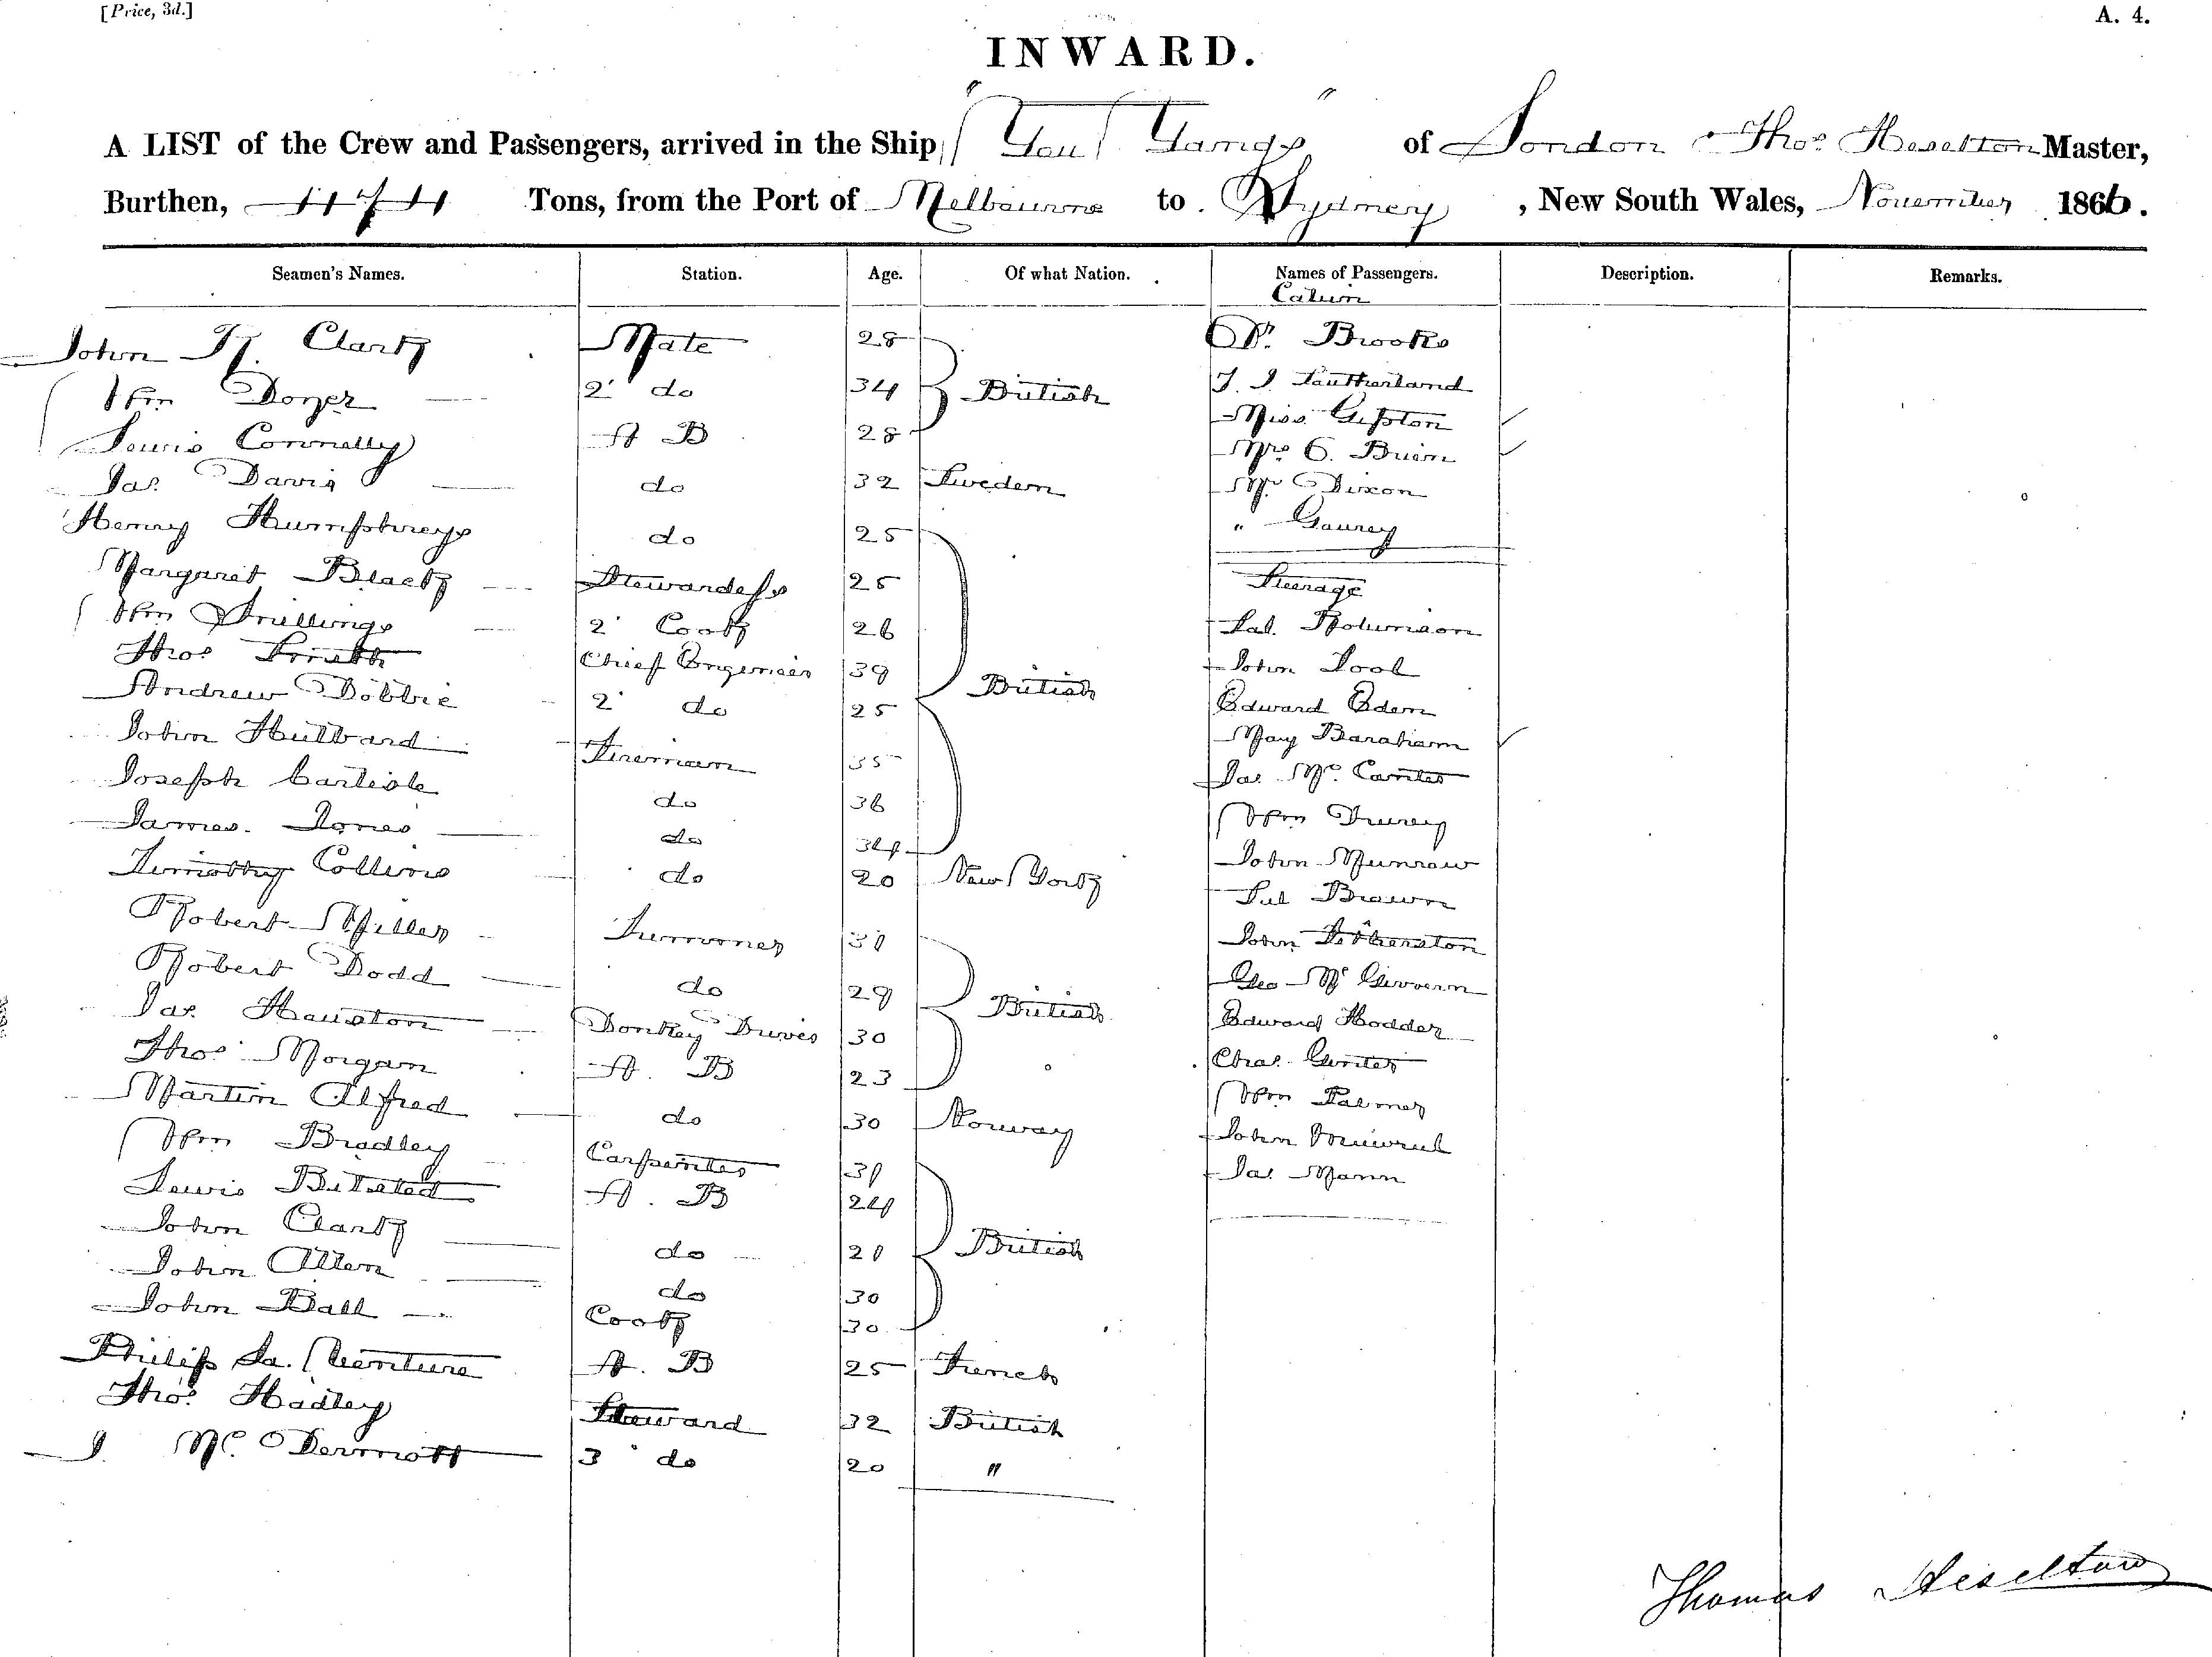 [Price, 3d.] A. 4.
INWARD.
A LIST of the Crew and Passengers, arrived in the Ship "You Yangs" of London Thos. Heselton Master,
Burthen, 474 Tons, from the Port of Melbourne to Sydney, New South Wales, November 1866.
Seamen's Names. Station. Age. Of what Nation. Names of Passengers. Description. Remarks.
Cabin
John H. Clark Mate 28 Dr. Brooks
Wm 2' do 34 British J. J. Sutherland
Lewis Connelly A B 28 Miss
Mrs O. Brien
Jas. Davis do 32 Sweden Mr Dixon
Henry Humphreys do 25 "
Margaret Black Stewardess 25 Steerage
Wm 2' Cook 26 Robinson
Thos. Smith Chief Engineer 39 John Pool
Andrew Dobbie 2' do 25 British Edward Edem
John Hubbard Fireman 35 May Baraham
Joseph Carlisle do 36 Jas Mc.
James Jones do 34 Wm Drurey
Timothy Collins do 20 New York John Munrow
Brown
Robert Miller Trimmer 31 John
Robert Dodd do 29 British Geo Mc Givvern
Jas. Houston Donkey Driver 30 Edward Hodder
Thos. Morgan A. B 23 Chas. Gunter
Martin Alfred do 30 Norway Wm Palmer
Wm Bradley Carpenter 31 John
Lewis A. B 24 Jas. Mann
John Clark do 21 British
John Allen do 30
John Ball Cook 30
Philip La. Venture A. B 25 French
Thos. Hadley Steward 32 British
J. Mc. Dermott 3' do 20 "
Thomas Heselton